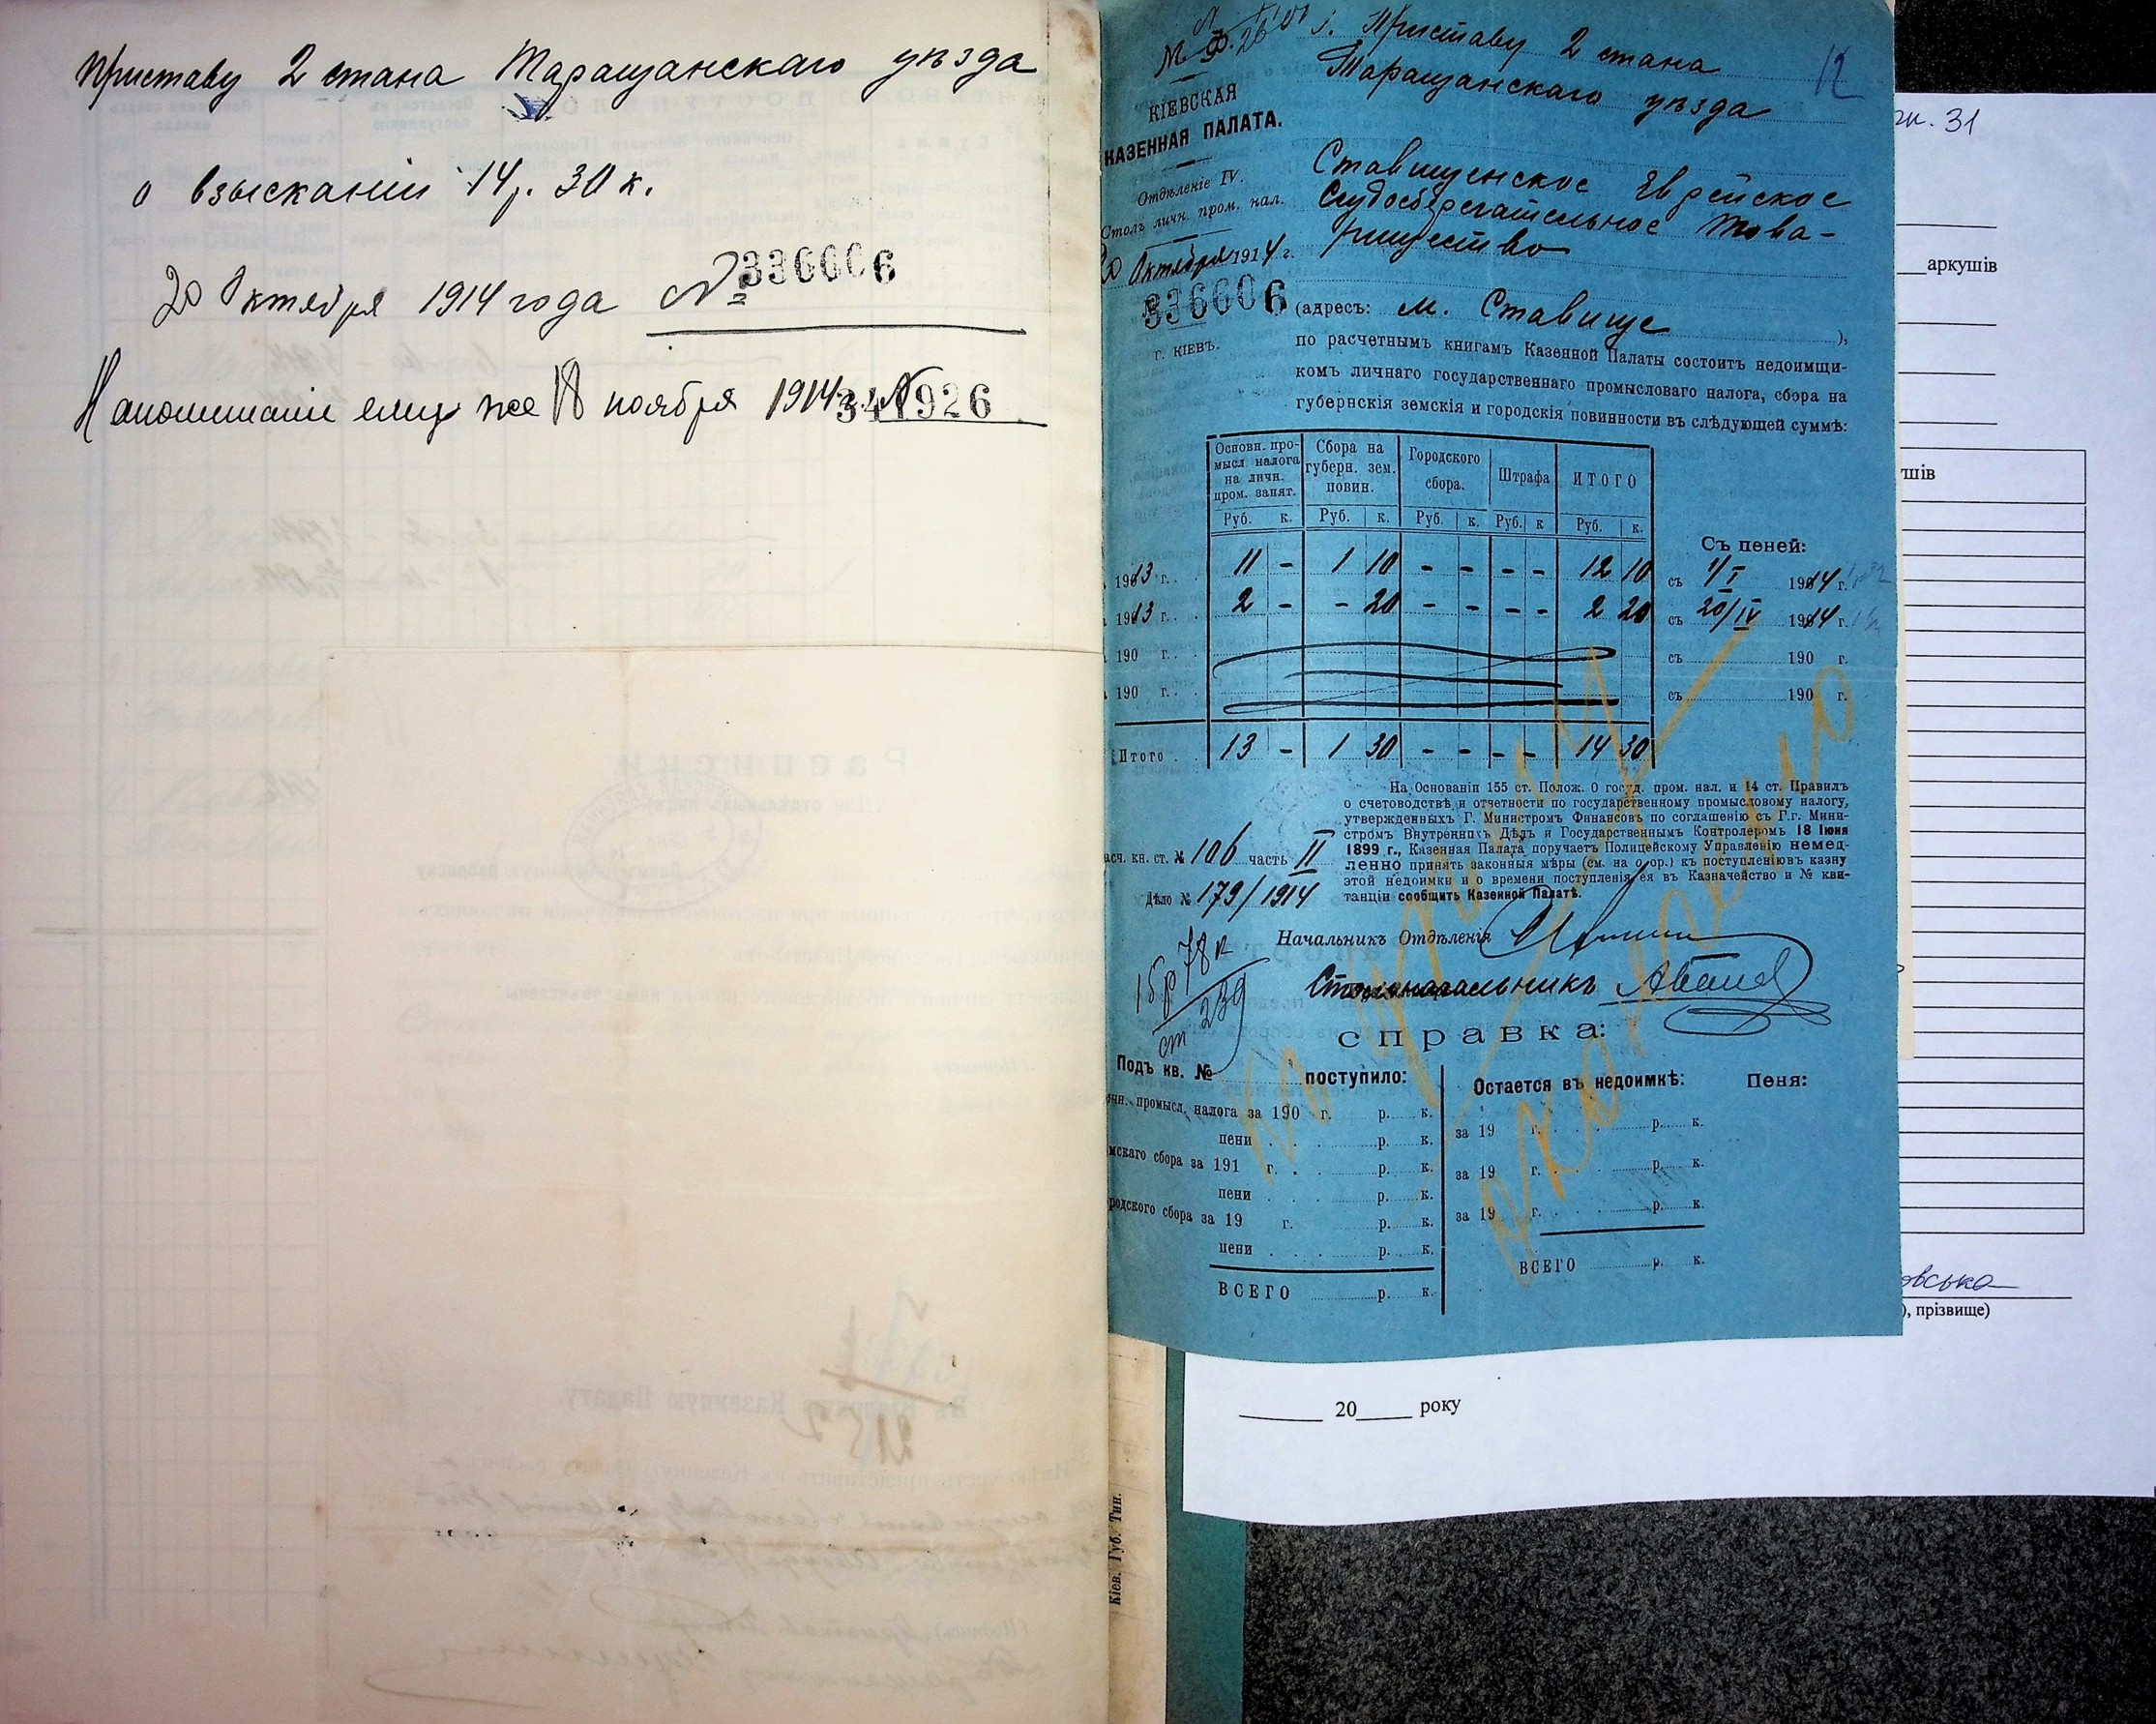 Приставу 2 стана Таращанскаго уѣзда
о взысканіи 14 р. 30 к.
20 Октября 1914 года № 336606
Напоминаніе ему же 18 ноября 1914 г. № 341926
г. Приставу 2 стана
Таращанскаго уѣзда
12
КІЕВСКАЯ
КАЗЕННАЯ ПАЛАТА.
Отдѣленіе IV.
Столъ личн. пром. нал.
20 Октября 1914 г.
336606
г. КІЕВЪ.
Ставищенское Еврейское
Ссудосберегательное Това-
рищество
(адресъ: м. Ставище ),
по расчетнымъ книгамъ Казенной Палаты состоитъ недоимщи-
комъ личнаго государственнаго промысловаго налога, сбора на
губернскія земскія и городскія повинности въ слѣдующей суммѣ:
Основн. про-
мысл. налога
на личн.
пром. занят.
Сбора на
губерн. зем.
повин.
Городского
сбора.
Штрафа
ИТОГО
Руб. к. Руб. к. Руб. к. Руб. к Руб. к.
Съ пеней:
1913 г. 11 - 1 10 - - - - 12 10 съ 1/I 1914 г.
1913 г. 2 - - 20 - - - - 2 20 съ 20/IV 1914 г.
190 г. съ 190 г.
190 г. съ 190 г.
Итого 13 - 1 30 - - - - 14 30
На Основаніи 155 ст. Полож. О госуд. пром. нал. и 14 ст. Правилъ
о счетоводствѣ и отчетности по государственному промысловому налогу,
утвержденныхъ Г. Министромъ Финансовъ по соглашенію съ Г.г. Мини-
стромъ Внутреннихъ Дѣлъ и Государственнымъ Контролеромъ 18 Іюня
1899 г., Казенная Палата поручаетъ Полицейскому Управленію немед-
ленно принять законныя мѣры (см. на обор.) къ поступленію въ казну
этой недоимки и о времени поступленія ея въ Казначейство и № кви-
танціи сообщить Казенной Палатѣ.
асч. кн. ст. № 106 часть II
Дѣло № 179/1914
Начальникъ Отдѣленія
Столоначальникъ
15 р 78 к
ст 239
СПРАВКА:
Подъ кв. № поступило:
Остается въ недоимкѣ: Пеня:
нн. промысл. налога за 190 г. р. к.
пени р. к.
мскаго сбора за 191 г. р. к.
пени р. к.
родского сбора за 19 г. р. к.
пени р. к.
ВСЕГО р. к.
за 19 г. р. к.
за 19 г. р. к.
за 19 г. р. к.
ВСЕГО р. к.
Кіев. Губ. Тип.
31
аркушів
шів
овська
), прізвище)
20 року